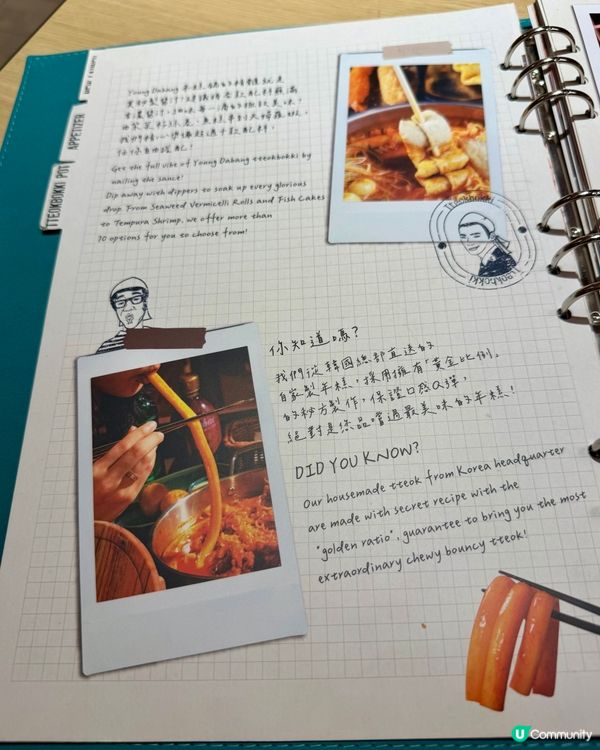 SOUP / STARTER
APPETIZER
TTEOKBOKKI POT
Young Dabang 年糕鍋的精髓就是
Get the full vibe of Young Dabang tteokbokki by
nailing the sauce!
Dip away with dippers to soak up every glorious
drop. From Seaweed Vermicelli Rolls and Fish Cakes
to Tempura Shrimp, we offer more than
10 options for you to choose from!
Tteokbokki
Tteokbokki
你知道嗎?
我們從韓國總部直送的
自家製年糕,採用擁有「黃金比例」
的秘方製作,保證口感Q彈,
絕對是您品嚐過最美味的年糕!
DID YOU KNOW?
Our housemade tteok from Korea headquarter
are made with secret recipe with the
"golden ratio", guarantee to bring you the most
extraordinary chewy bouncy tteok!
U Community